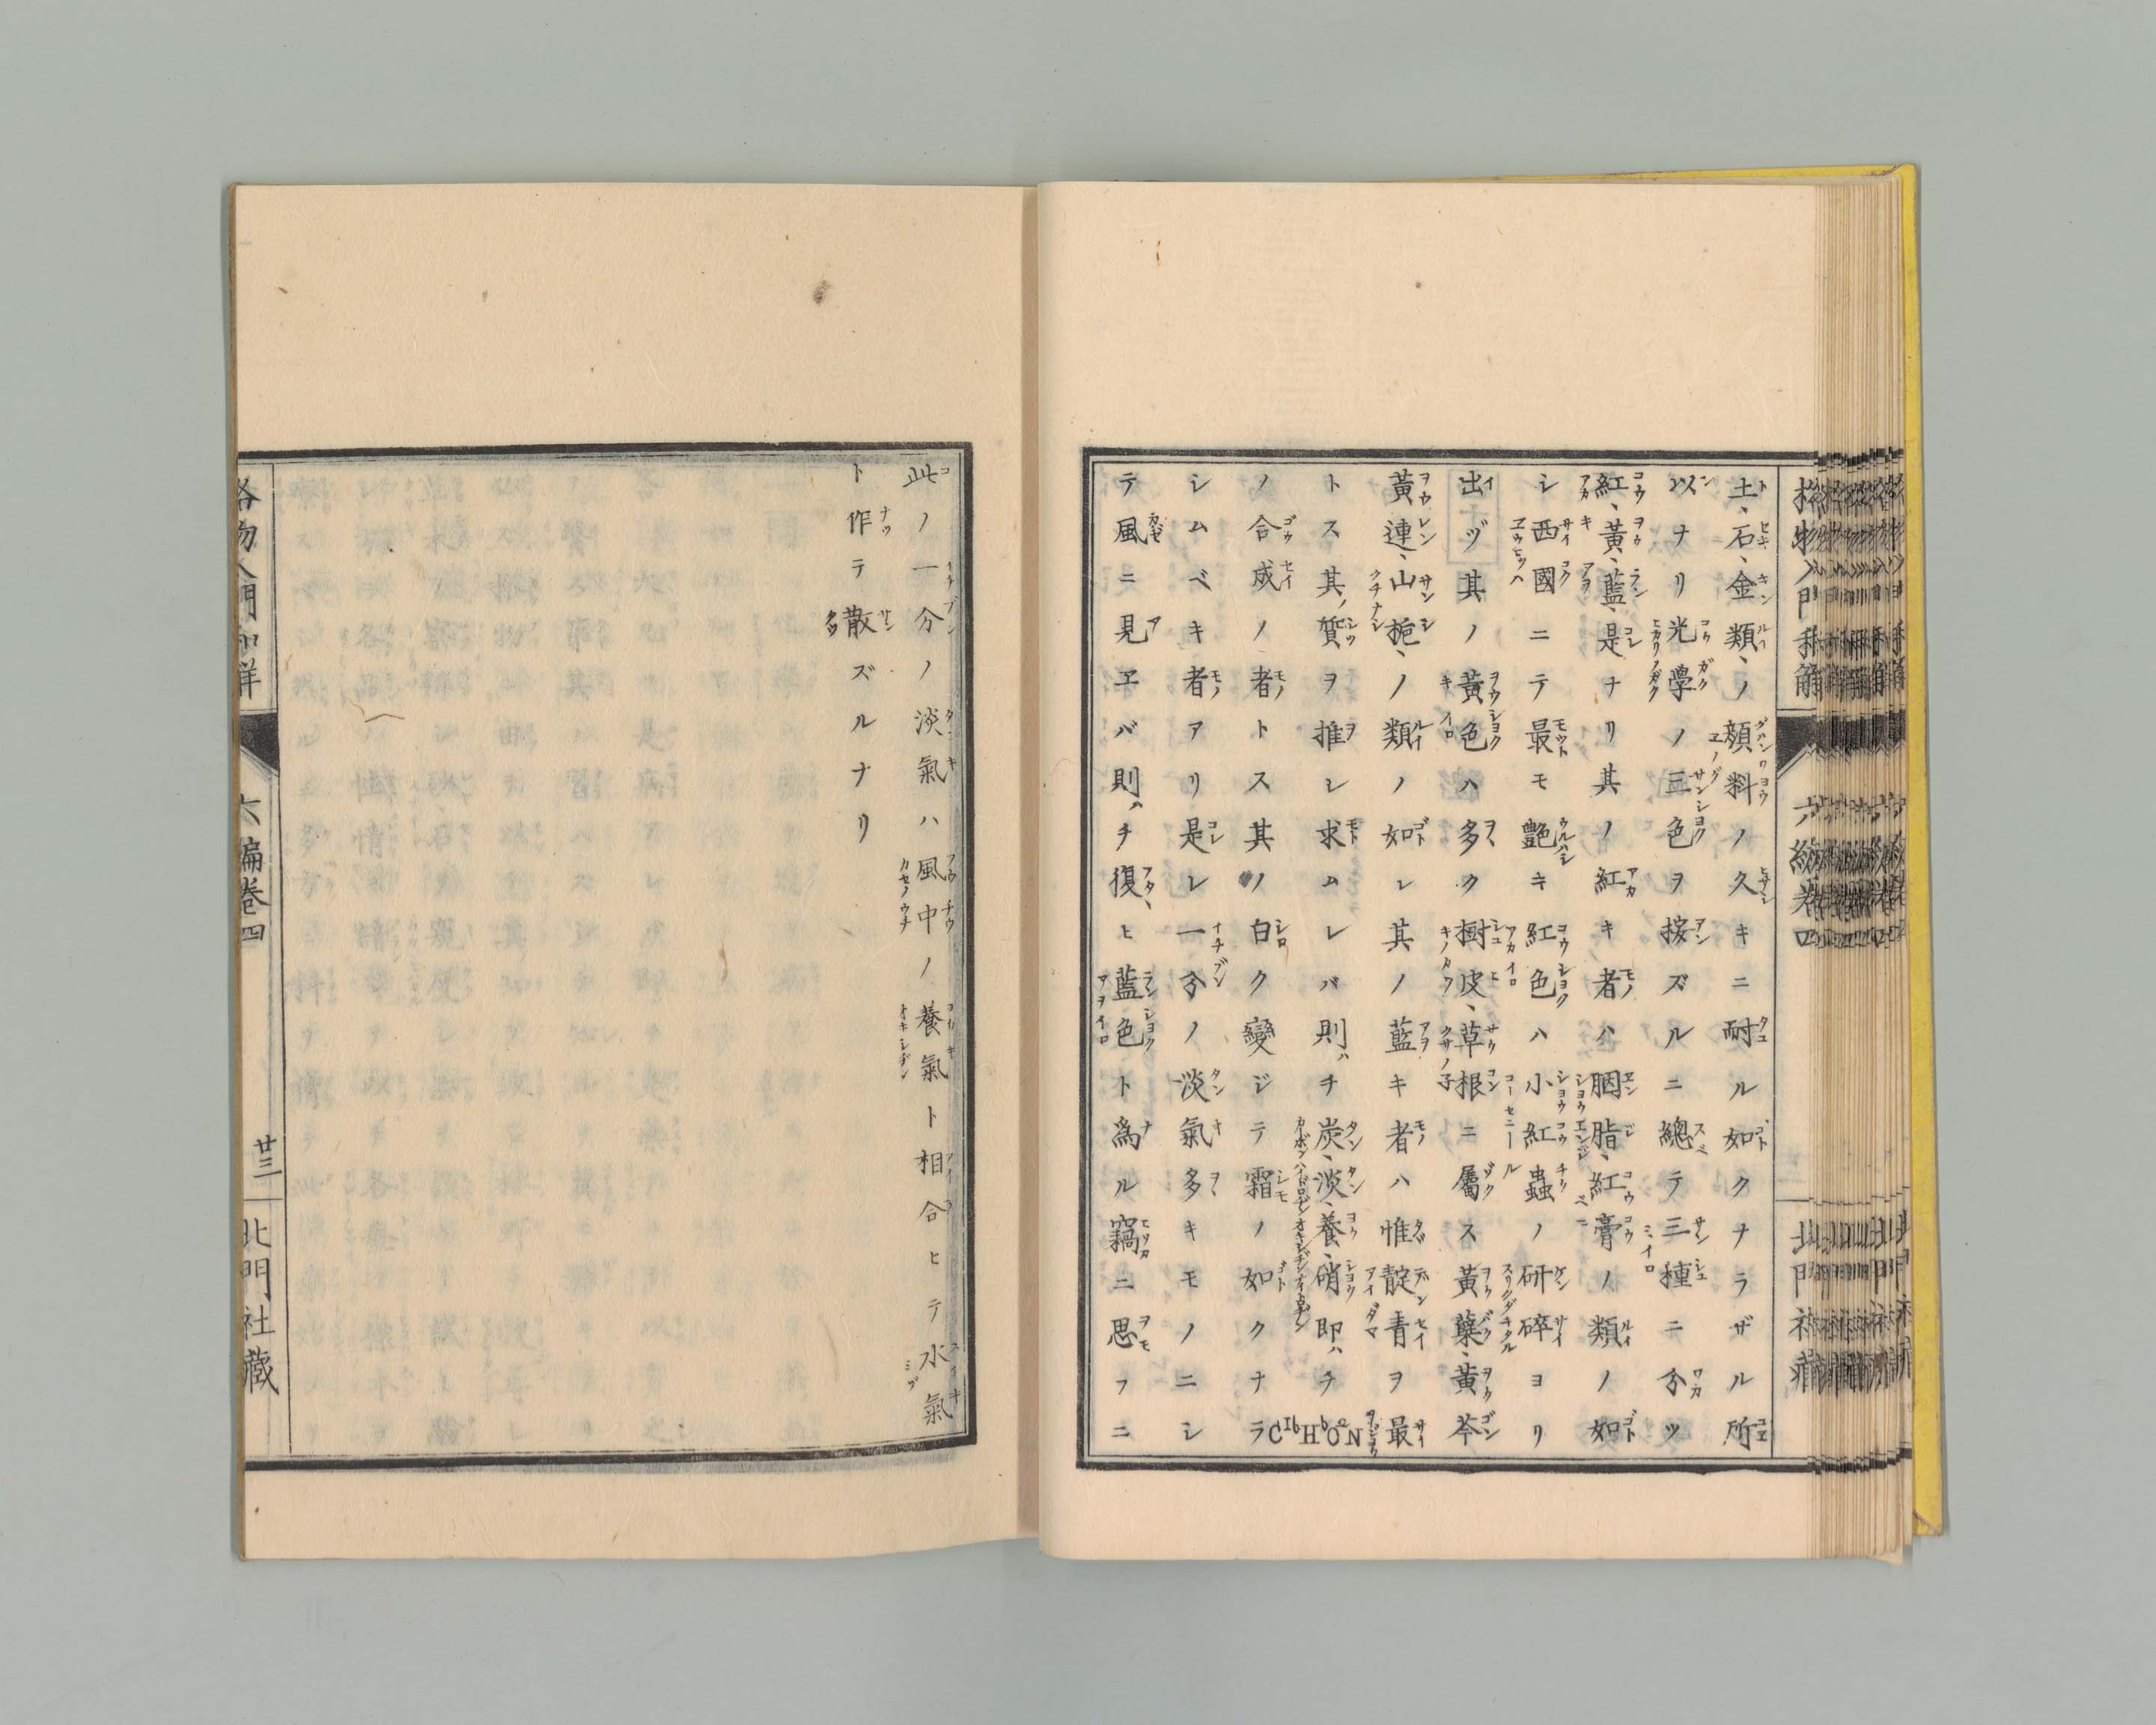 土、石、金類、ノ顔料ノ久キニ耐ル如クナラザル所
以ナリ光學ノ三色ヲ按ズルニ總テ三種ニ分ツ
紅、黃、藍、是ナリ其ノ紅キ者ハ胭脂、紅膏ノ類ノ如
シ西國ニテ最モ艶キ紅色ハ小紅蟲ノ研碎ヨリ
出ヅ其ノ黃色ハ多ク樹皮、草根ニ屬ス黃蘗、黃芩
黃連、山梔、ノ類ノ如シ其ノ藍キ者ハ惟靛青ヲ最
トス其ノ質ヲ推シ求ムレバ則ハチ炭、淡、養、硝即ハチ
ノ合成ノ者トス其ノ白ク變ジテ霜ノ如クナラ
シムベキ者アリ是レ一分ノ淡氣多キモノニシ
テ風ニ見ヱバ則ハチ復ヒ藍色ト爲ル竊ニ思フニ
此ノ一分ノ淡氣ハ風中ノ養氣ト相合ヒテ水氣
ト作テ散ズルナリ
格物入門和解
六編卷四
廿三
北門社藏